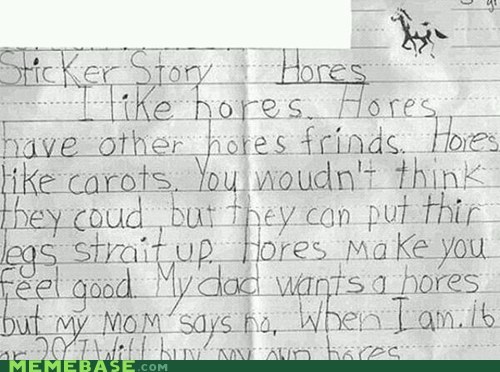 Sticker Story Hores
I like hores. Hores
have other hores frinds. Hores
like carots. You woudn't think
they coud but they can put thir
legs strait up. Hores make you
feel good. My dad wants a hores
but my mom says no. When I am 16
or 20 I will buy my own hores
MEMEBASE.com